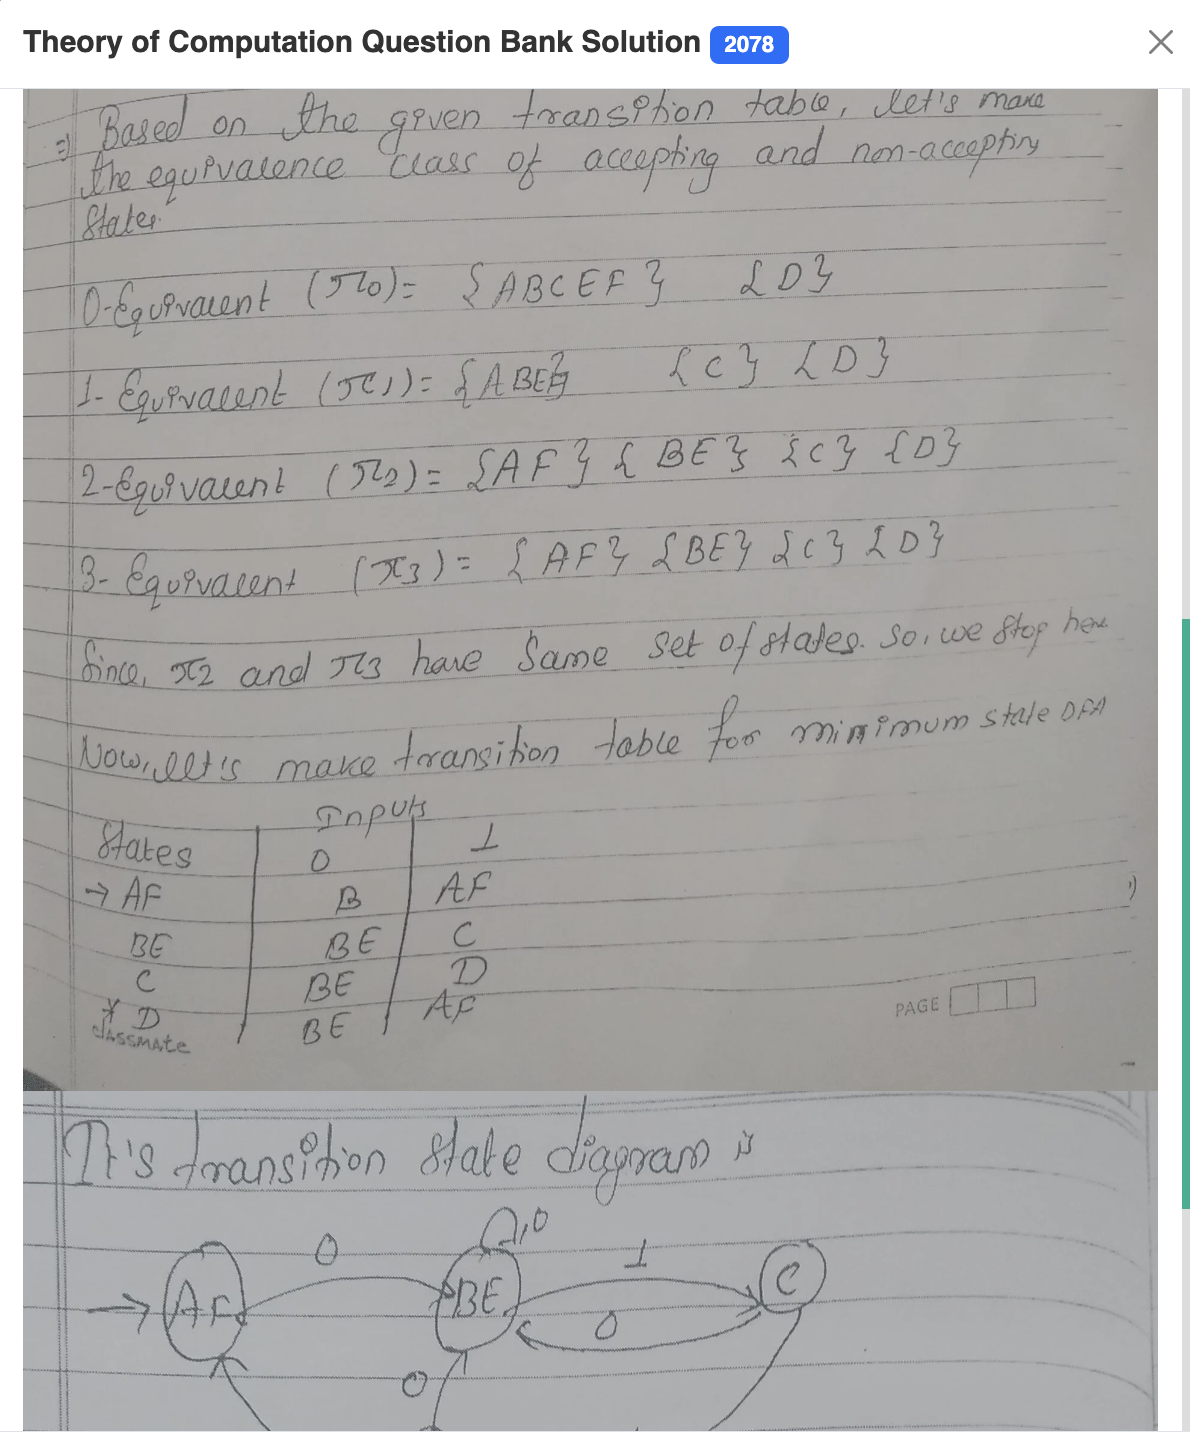 Theory of Computation Question Bank Solution 2078
=) Based on the given transition table, let's make
the equivalence class of accepting and non-accepting
states.
0-Equivalent (π0) = {ABCEF} {D}
1-Equivalent (π1) = {ABEF} {C} {D}
2-Equivalent (π2) = {AF} {BE} {C} {D}
3-Equivalent (π3) = {AF} {BE} {C} {D}
Since, π2 and π3 have same set of states. so, we stop here
Now, let's make transition table for minimum state DFA
Inputs
States 0 1
→ AF B AF
BE BE C
C BE D
* D BE AF
classmate
PAGE
It's transition state diagram is
0 0 1
AF BE C
0
0